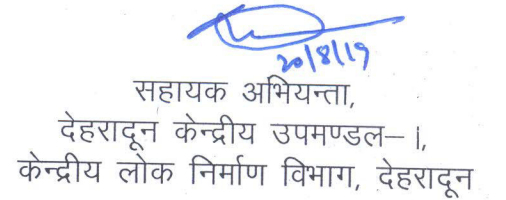 20/8/19
सहायक अभियन्ता,
देहरादून केन्द्रीय उपमण्डल– I,
केन्द्रीय लोक निर्माण विभाग, देहरादून